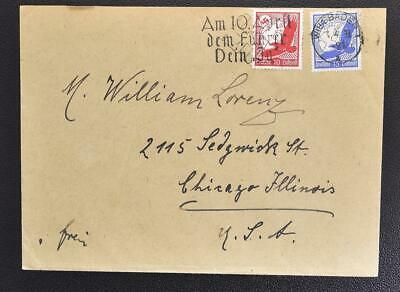 Am 10. April
dem Führer
Dein
WIESBADEN
15
M. William Lorenz
2115 Sedgwick St.
Chicago Illinois
frei
U.S.A.